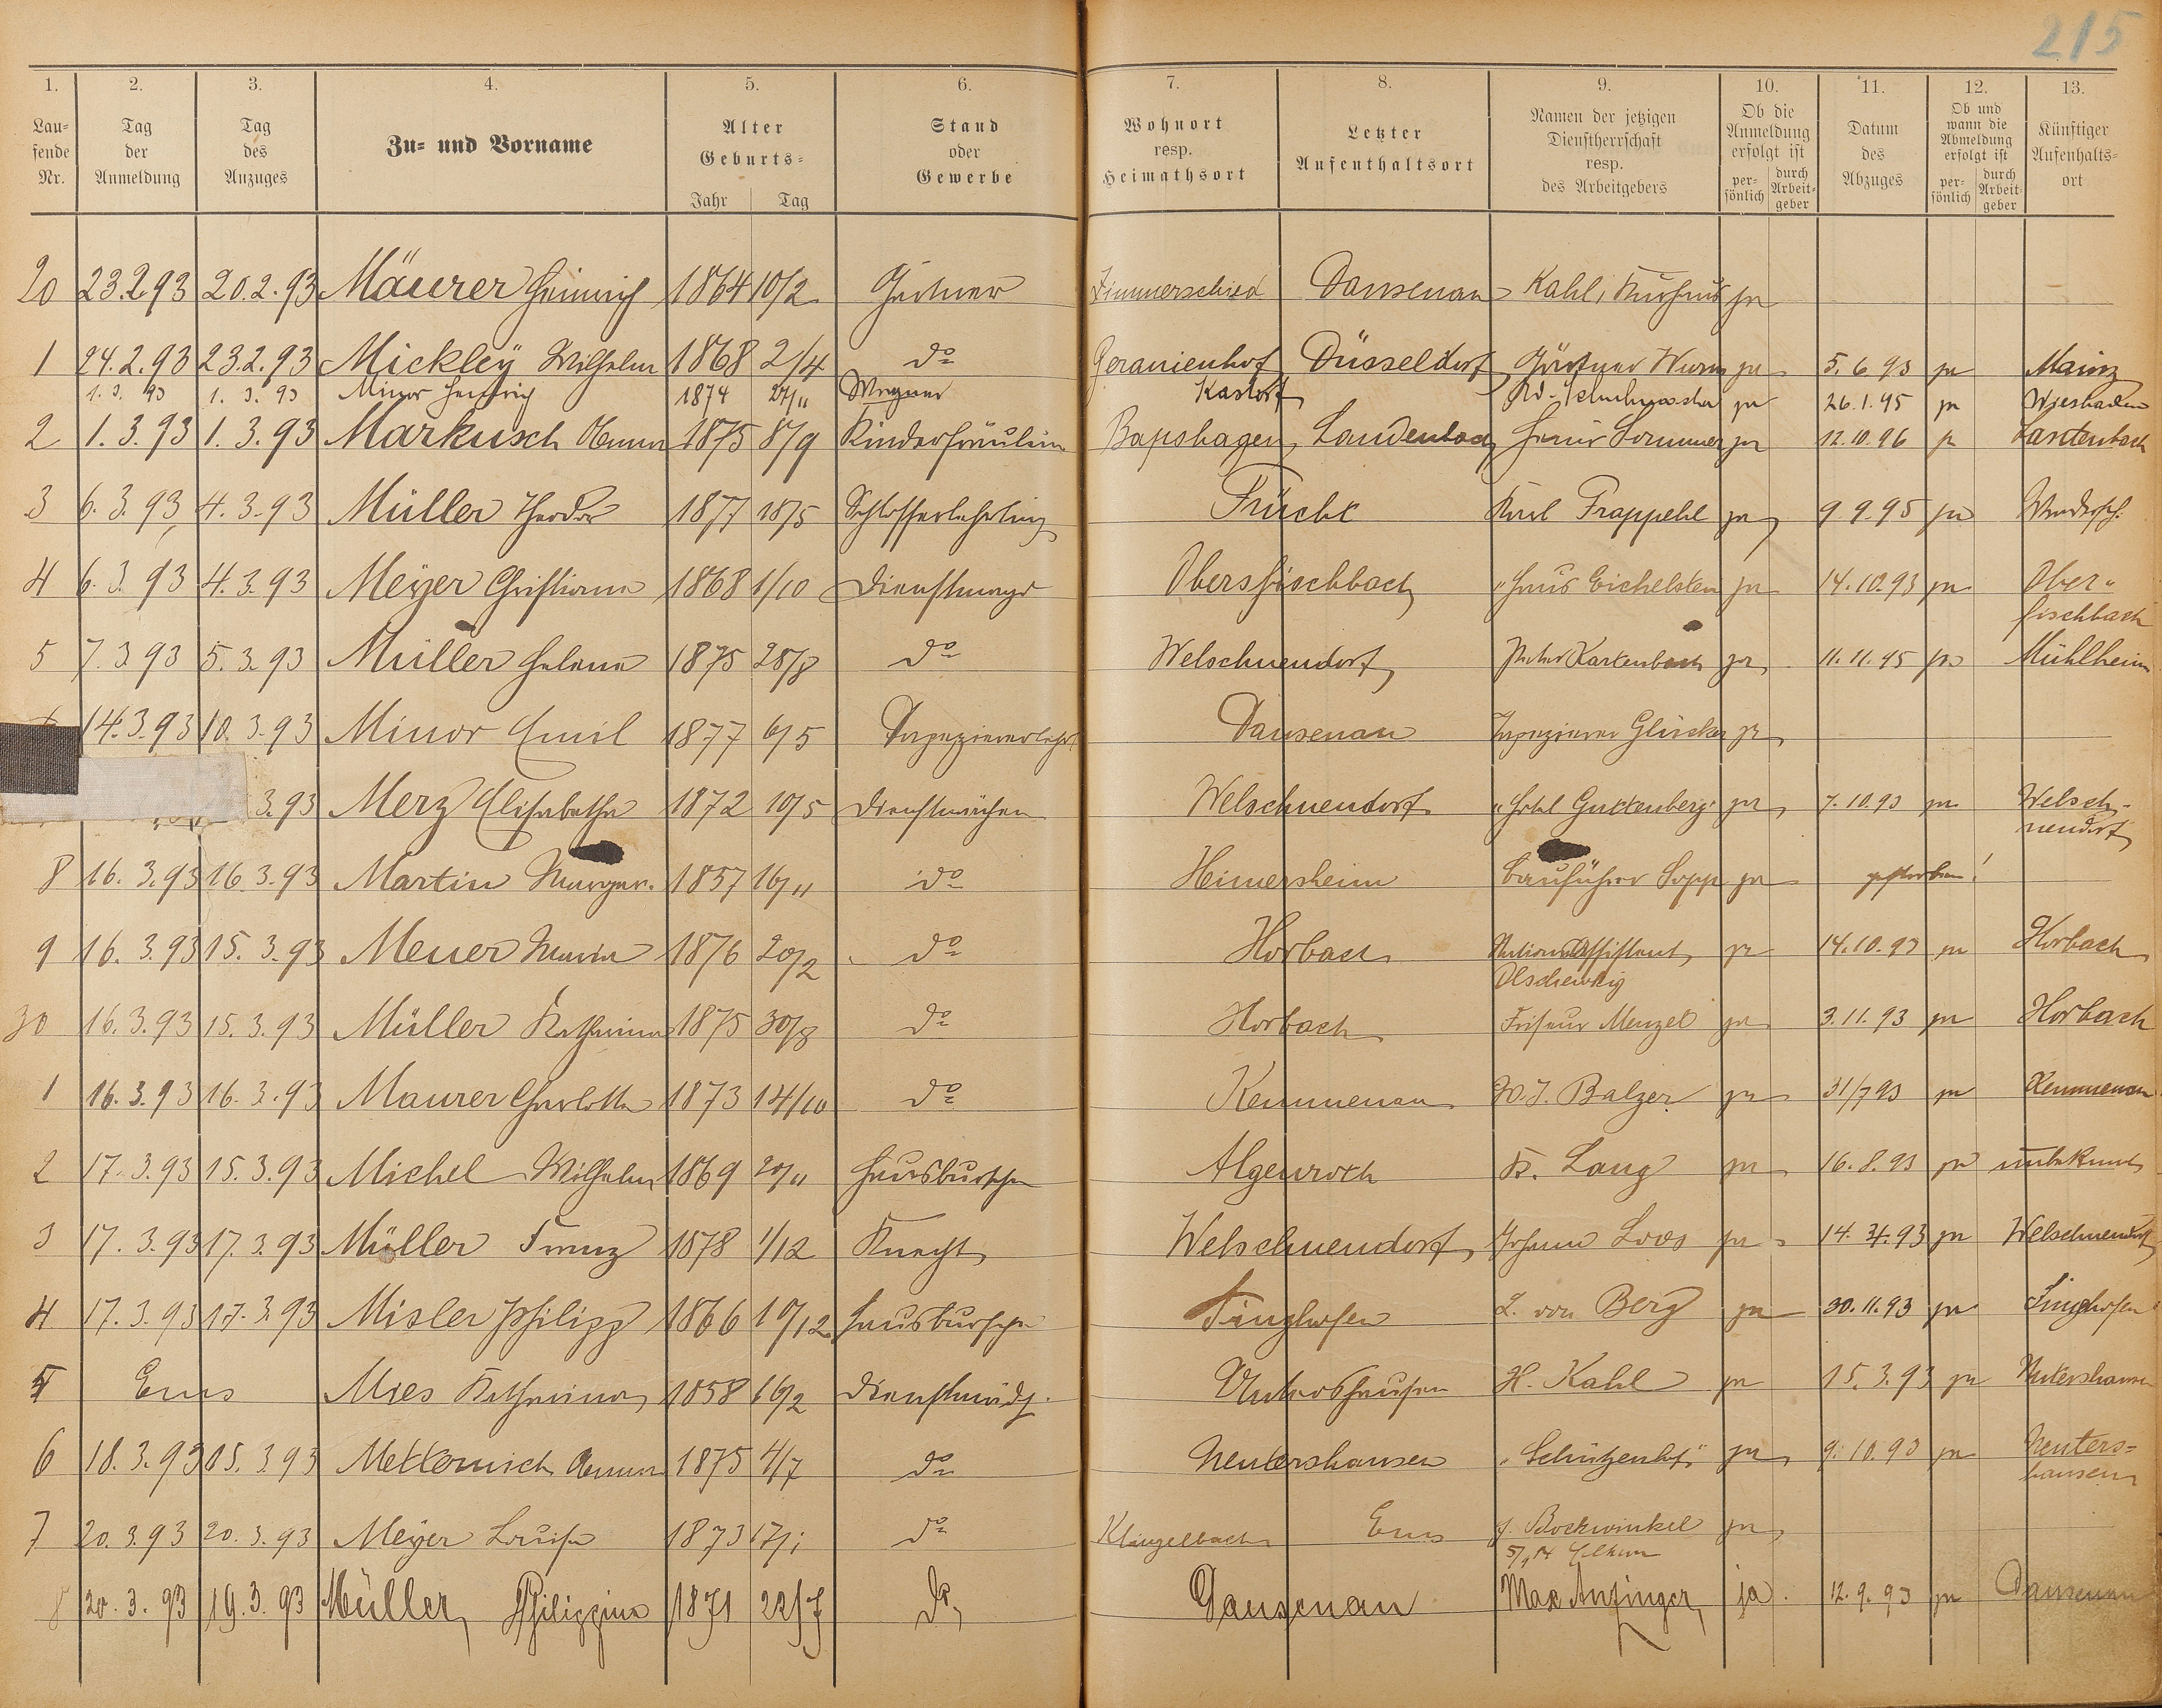 215
1. 2. 3. 4. 5. 6. 7. 8. 9. 10. 11. 12. 13.
Laufende Nr. Tag der Anmeldung Tag des Anzuges Zu- und Vorname Alter Geburts- Jahr Tag Stand oder Gewerbe Wohnort resp. Heimathsort Letzter Aufenthaltsort Namen der jetzigen Dienstherrschaft resp. des Arbeitgebers Ob die Anmeldung erfolgt ist persönlich durch Arbeitgeber Datum des Abzuges Ob und wann die Abmeldung erfolgt ist persönlich durch Arbeitgeber Künftiger Aufenthaltsort
20 23.2.93 20.2.93 Mäurer Heinrich 1864 10/2 Gärtner Zimmerschied Dausenau Kahl, Kurhaus ja
1 24.2.93 23.2.93 Mickley Wilhelm 1868 2/4 do Geranienhof Düsseldorf Gärtner Wurm ja 5.6.93 ja Mainz
1.3.93 1.3.93 Minor Heinrich 1874 27/11 Wagner Kastorf ja 26.1.95 ja Wiesbaden
2 1.3.93 1.3.93 Markusch Anna 1875 8/9 Kinderfräulein Bapshagen Laudenbach Sommer ja 12.10.96 ja
3 6.3.93 4.3.93 Müller Theodor 1877 18/5 Schlosserlehrling Frücht Karl Frappehl ja 9.9.95 ja
4 6.3.93 4.3.93 Meyer Christiane 1868 1/10 Dienstmagd Oberfischbach "Haus Eichelstein ja 14.10.93 ja Ober-
fischbach
5 7.3.93 5.3.93 Müller Helene 1875 28/8 do Welschneudorf Peter Kartenbach ja 11.11.95 ja Mühlheim
14.3.93 10.3.93 Minor Emil 1877 6/5 Tapeziererlehrl Dausenau Tapezierer Glücker ja
3.93 Merz Elisabetha 1872 10/5 Dienstmädchen Welschneudorf "Hotel Guttenberg" ja 7.10.93 ja Welsch-
neudorf
8 16.3.93 16.3.93 Martin Margar. 1857 16/11 do Heimersheim Bauführer Sopp ja gestorben!
9 16.3.93 15.3.93 Meuer Maria 1876 20/2 do Horbach Stationsassistent ja 14.10.93 ja Horbach
Olschewsky
30 16.3.93 15.3.93 Müller Katharina 1875 30/8 do Horbach Friseur Menzel ja 3.11.93 ja Horbach
1 16.3.93 16.3.93 Maurer Charlotte 1873 14/10 do Kemmenau W.J. Balzer ja 31/7 93 ja Kemmenau
2 17.3.93 15.3.93 Michel Wilhelm 1869 20/11 Hausbursche Algenroth K. Lang ja 16.8.93 ja unbekannt
3 17.3.93 17.3.93 Müller Franz 1878 1/12 Knecht Welschneudorf Johann Loos ja 14.4.93 ja Welschneudorf
4 17.3.93 17.3.93 Misler Philipp 1866 10/12 Hausbursche Singhofen L. von Berg ja 30.11.93 ja Singhofen
5 Ems Mies Katharina 1858 16/2 Dienstmädch. Nentershausen H. Kahl ja 15.3.93 ja Nentershausen
6 18.3.93 15.3.93 Metternich Anna 1875 4/7 do Nentershausen "Schützenhof" ja 9.10.93 ja Nenters=
hausen
7 20.3.93 20.3.93 Meyer Louise 1873 17/1 do Klingelbach Ems J. Bockwinkel ja
8 20.3.93 19.3.93 Müller, Philippine 1871 22/7 do Dausenau Max Anzinger, ja. 12.9.93 ja Dausenau